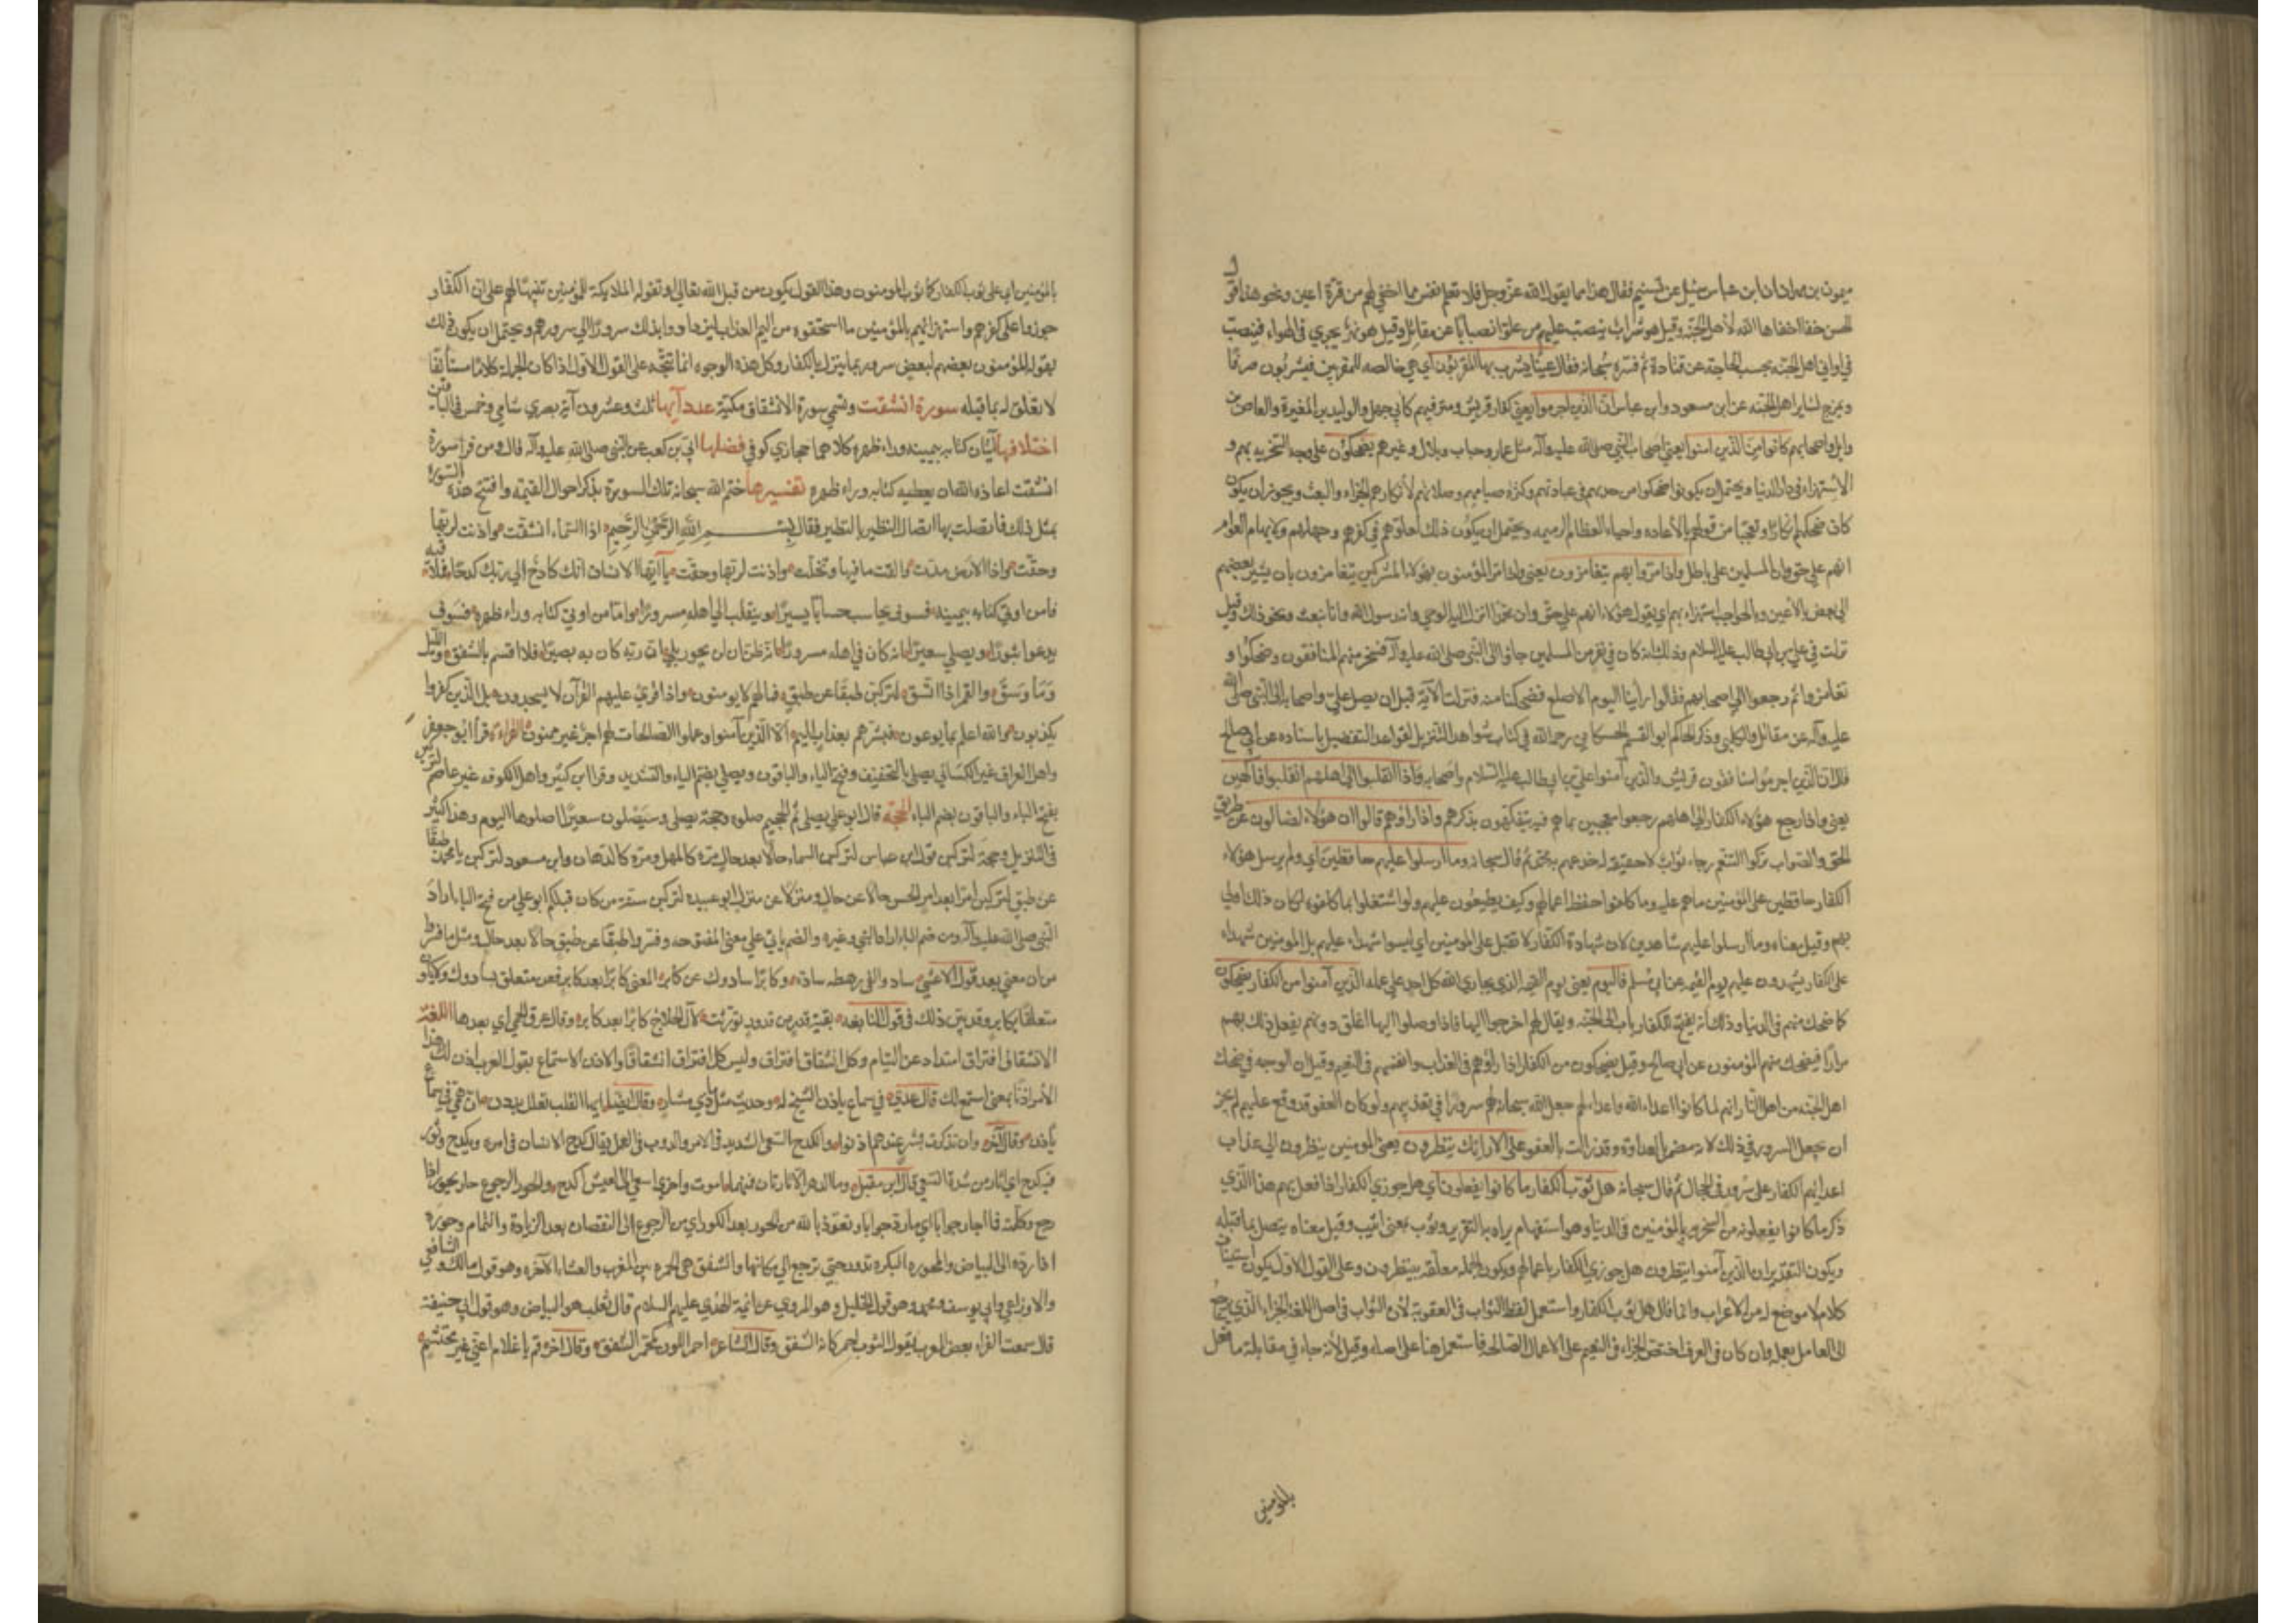 ميمون بن مهران ان ابن عباس سئل عن تسنيم فقال هذا مما يقول الله عز وجل فلا تعلم نفس ما اخفي لهم من قرة اعين ونحو هذا قول
الحسن خفايا اخفاها الله لأهل الجنة وقيل هو شراب ينصب عليهم من علو انصبابا عن مقاتل وقيل هو نهر يجري في الهواء فينصب
في اواني اهل الجنة بحسب الحاجة عن قتادة ثم فسره سبحانه فقال عينا يشرب بها المقربون اي هي خالصة للمقربين فيشربون صرفا
ويمزج لساير اهل الجنة عن ابن مسعود وابن عباس ان الذين اجرموا يعني كفار قريش ومترفيهم كأبي جهل والوليد بن المغيرة والعاص بن
وايل واصحابهم كانوا من الذين امنوا يعني اصحاب النبي صلى الله عليه وآله مثل عمار وخباب وبلال وغيرهم يضحكون على وجه السخرية بهم و
الاستهزاء في دار الدنيا ويحتمل ان يكونوا ضحكوا من جدهم في عبادتهم وكثرة صيامهم وصلاتهم لأنكارهم الجزاء والبعث ويجوز ان يكون
كان ضحكهم انكارا وتعجبا من قولهم بالأعادة واحياء العظام الرميمه ويحتمل ان يكون ذلك لغلوهم في كفرهم وجهلهم ولايهام العوام
انهم على حق وان المسلمين على باطل واذا مروا بهم يتغامزون يعني واذا مر المؤمنون بهؤلاء المشركين يتغامزون بان يشير بعضهم
الى بعض بالأعين والحواجب استهزاء بهم اي يقول هؤلاء انهم على حق وان محمدا انزل اليه الوحي وانه رسول الله وانا نبعث ونحو ذلك وقيل
نزلت في علي بن ابي طالب عليه السلام وذلك انه كان في نفر من المسلمين جاؤا الى النبي صلى الله عليه وآله فسخر منهم المنافقون وضحكوا و
تغامزوا ثم رجعوا الى اصحابهم فقالوا راينا اليوم الاصلع فضحكنا منه فنزلت الآية قبل ان يصل علي واصحابه الى النبي صلى الله
عليه وآله عن مقاتل والكلبي وذكر الحاكم ابو القسم الحسكاني رحمه الله في كتاب شواهد التنزيل لقواعد التفضيل باسناده عن ابي صالح
قال ان الذين اجرموا منافقون قريش والذين آمنوا علي بن ابي طالب عليه السلام واصحابه واذا انقلبوا الى اهلهم انقلبوا فاكهين
يعني واذا رجع هؤلاء الكفار الى اهلهم رجعوا معجبين بما هم فيه يتفكهون بذكرهم واذا راوهم قالوا ان هؤلاء لضالون عن طريق
الحق والصواب تركوا التنعم رجاء ثواب لا حقيقة له خدعهم به محمد ثم قال سبحانه وما ارسلوا عليهم حافظين اي ولم يرسل هؤلاء
الكفار حافظين على المؤمنين ما هم عليه وما كانوا حفظ اعمالهم وكيف يطيعون عليهم ولو اشتغلوا بما كلفوه لكان ذلك اولى
بهم وقيل معناه وما ارسلوا عليهم شاهدين لان شهادة الكفار لا تقبل على المؤمنين اي ليسوا شهداء عليهم بل المؤمنين شهداء
على الكفار يشهدون عليهم يوم القيمه عن ابي مسلم فاليوم يعني يوم القيمة الذي يجازي الله كل احد على عمله الذين آمنوا من الكفار يضحكون
كما ضحك منهم في الدنيا وذلك انه يفتح للكفار باب الى الجنة ويقال لهم اخرجوا اليها فاذا وصلوا اليها اغلق دونهم يفعل ذلك بهم
مرارا فيضحك منهم المؤمنون عن ابي صالح وقيل يضحكون من الكفار اذا رأوهم في العذاب وانفسهم في النعيم وقيل ان الوجه في ضحك
اهل الجنة من اهل النار انهم لما كانوا اعداء الله واعداءهم جعل الله سبحانه لهم سرورا في تعذيبهم ولو كان العفو قد وقع عليهم لم يجز
ان يجعل السرور في ذلك لانه مضمن بالعداوة وقد زالت بالعفو على الارائك ينظرون يعني المومنين ينظرون الى عذاب
اعدائهم الكفار على سرر في الحجال ثم قال سبحانه هل ثوب الكفار ما كانوا يفعلون اي هل جوزي الكفار اذا فعل بهم هذا الذي
ذكر ما كانوا يفعلونه من السخرية بالمؤمنين في الدنيا وهو استفهام يراد به التقرير وثوب بمعنى اثيب وقيل معناه يتصل بما قبله
ويكون التقدير ان الذين آمنوا ينظرون هل جوزي الكفار باعمالهم ويكون الجملة معلقة بينظرون وعلى القول الاول يكون استيناف
كلام لا موضع له من الأعراب وانما قال هل ثوب الكفار واستعمل لفظ الثواب في العقوبة لأن الثواب في اصل اللغة الجزاء الذي يرجع
الى العامل بعمله وان كان في العرف اختص الجزاء في النعيم على الاعمال الصالحة فاستعمل هنا على اصله وقيل لأنه جاء في مقابلة ما فعل
بالمؤمنين
بالمؤمنين اي هل ثوب الكفار كما ثوب المومنون وهذا القول يكون من قبل الله تعالى او تقوله الملايكة للمؤمنين تنبيها لهم على ان الكفار
جوزوا على كفرهم واستهزائهم بالمؤمنين ما استحقوه من اليم العذاب ليزدادوا بذلك سرورا الى سرورهم ويحتمل ان يكون ذلك
يقوله المؤمنون بعضهم لبعض سرورا بما ينزل بالكفار وكل هذه الوجوه انما تتجه على القول الاول اذا كان الجملة كلاما مستأنفا
لا تعلق له بما قبله سورة انشقت وتسمى سورة الانشقاق مكية عدد آيها ثلث وعشرون آية بصري شامي وخمس في الباقين
اختلافها آيتان كتابه بيمينه وراء ظهره كلاهما حجازي كوفي فضلها ابي بن كعب عن النبي صلى الله عليه وآله قال ومن قرأ سورة
انشقت اعاذه الله ان يعطيه كتابه وراء ظهره تفسيرها ختم الله سبحانه تلك السورة بذكر احوال القيمة وافتتح هذه السورة
بمثل ذلك فاتصلت بها اتصال النظير بالنظير فقال بسم الله الرحمن الرحيم اذا السماء انشقت واذنت لربها
وحقت واذا الارض مدت والقت ما فيها وتخلت واذنت لربها وحقت يا ايها الانسان انك كادح الى ربك كدحا فملاقيه
فاما من اوتي كتابه بيمينه فسوف يحاسب حسابا يسيرا وينقلب الى اهله مسرورا واما من اوتي كتابه وراء ظهره فسوف
يدعوا ثبورا ويصلى سعيرا انه كان في اهله مسرورا انه ظن ان لن يحور بلى ان ربه كان به بصيرا فلا اقسم بالشفق والليل
وما وسق والقمر اذا اتسق لتركبن طبقا عن طبق فما لهم لا يومنون واذا قرئ عليهم القرآن لا يسجدون بل الذين كفروا
يكذبون والله اعلم بما يوعون فبشرهم بعذاب اليم الا الذين آمنوا وعملوا الصالحات لهم اجر غير ممنون القراءة قرأ ابو جعفر
واهل العراق غير الكسائي يصلى بالتخفيف وفتح الياء والباقون ويصلى بضم الياء والتشديد وقرا ابن كثير واهل الكوفه غير عاصم لتركبن
بفتح الباء والباقون بضم الباء الحجة قال ابو علي يصلى ثم الجحيم صلوه وحجة يصلى وسيصلون سعيرا اصلوها اليوم وهذا كثير
في التنزيل وحجة لتركبن قول ابن عباس لتركبن السماء حالا بعد حال مرة كالمهل ومرة كالدهان وابن مسعود لتركبن يا محمد طبقا
عن طبق لتركبن امرا بعد امر الحسن حالا عن حال ومنزلا عن منزل ابو عبيده لتركبن سنة من كان قبلكم ابو علي من فتح الباء اراد
النبي صلى الله عليه وآله ومن ضم الباء اراد النبي وغيره والضم ياتي على معنى المفتوحه وفسروا طبقا عن طبق حالا بعد حال ومثل ما فسر
من ان معنى بعد قول الاعشى ساد والفى رهطه ساده وكابرا سادوك عن كابر المعنى كابرا بعد كابر فعن متعلق بسادوك ولا يكون
متعلقا بكابر وقد بين ذلك في قول النابغه بقية قدر من قدور تورثت لآل الجلاح كابرا بعد كابر وقال عرق الحمى اي بعدها اللغة
الانشقاق افتراق امتداد عن التيام وكل انشقاق افتراق وليس كل افتراق انشقاقا والاذن الاستماع يقول العرب اذن لك هذا
الأمر اذنا بمعنى استمع لك قال عدي في سماع ياذن الشيخ له وحديث مثل ماذي مشار وقال ايضا ايها القلب تعلل بددن ان همي في سماع
يأذن وقال آخر وان ذكرت بشر عندهم اذنوا والكدح السعي الشديد في الامر والدوب في العمل يقال كدح الانسان في امره ويكدح وثور
فيه كدح اي آثار من شدة السعي قال ابن مقبل وما الدهر الا تارتان فمنهما اموت واخرى ابتغي العيش اكدح والحور الرجوع حار يحور اذا
رجع وكلمته فما احار جوابا اي ما رد جوابا ونعوذ بالله من الحور بعد الكور اي من الرجوع الى النقصان بعد الزيادة والتمام وحوره
اذا رده الى البياض والمحور البكره تدور حتى ترجع الى مكانها والشفق هي الحمرة بين المغرب والعشاء الآخره وهو قول مالك والشافعي
والاوزاعي وابي يوسف ومحمد وهو قول الخليل وهو المروي عن ائمة الهدى عليهم السلام قال ثعلب هو البياض وهو قول ابي حنيفة
قال سمعت الفراء بعض العرب يقول الثوب احمر كانه الشفق وقال الشاعر احمر اللون كمحمر الشفق وقال آخر قم يا غلام اعني غير محتشم